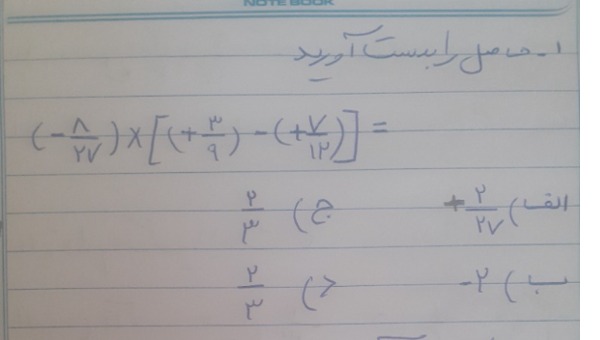 NOTE BOOK
۱- حاصل را بدست آورید
(-۸/۲۷) × [(+۳/۹) - (+۷/۱۲)] =
الف) +۲/۲۷ ج) ۲/۳
ب) -۲ د) ۲/۳